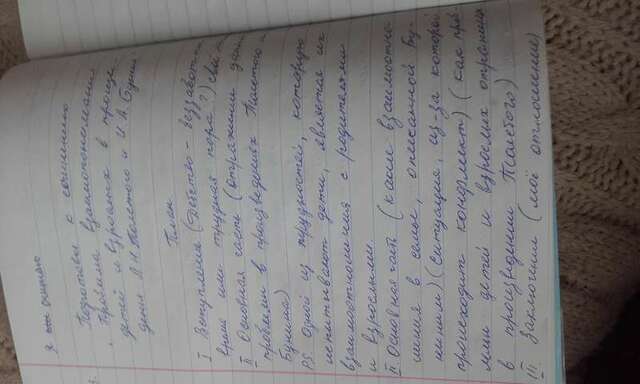 Я считаю
Подготовка к сочинению
Проблема взаимопонимания
детей и взрослых в произве-
дении Л.Н.Толстого и И.А.Бунин
План
I Вступление (Детство - беззаботн
время или трудная пора?)
II Основная часть (отражении данн
проблемы в произведениях Толстого и
Бунина)
PS Одной из трудностей, которую
испытывают дети, является их
взаимоотношения с родителями
и взрослыми.
II Основная часть (какие взаимоотно-
шения в семье, описанной Бу-
ниним) (ситуация, из-за которой
происходит конфликт) (как проб-
лемы детей и взрослых отражении
в произведении Толстого)
III Заключении (моё отношение)